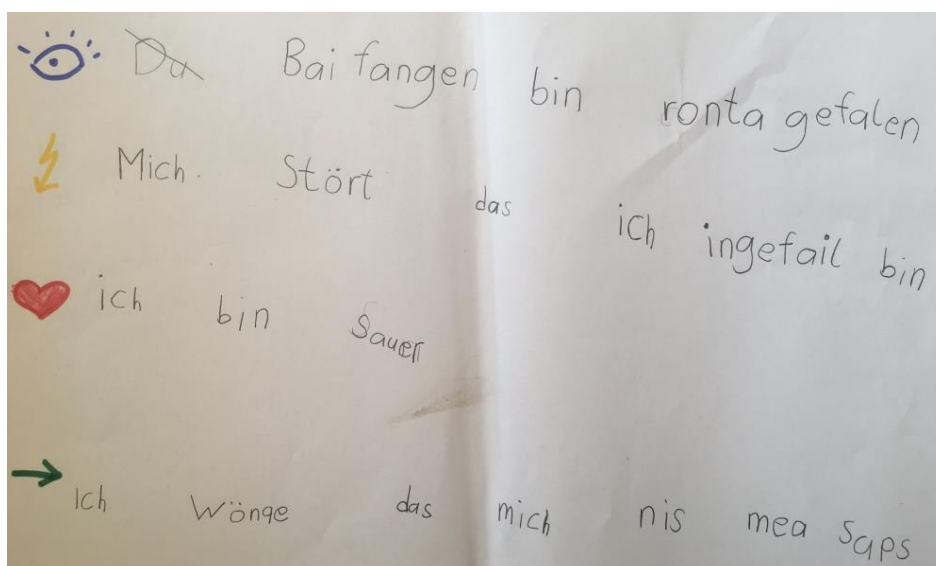 Du Bai fangen bin ronta gefalen
Mich. Stört das ich ingefail bin
ich bin Sauer
Ich Wönge das mich nis mea Saps